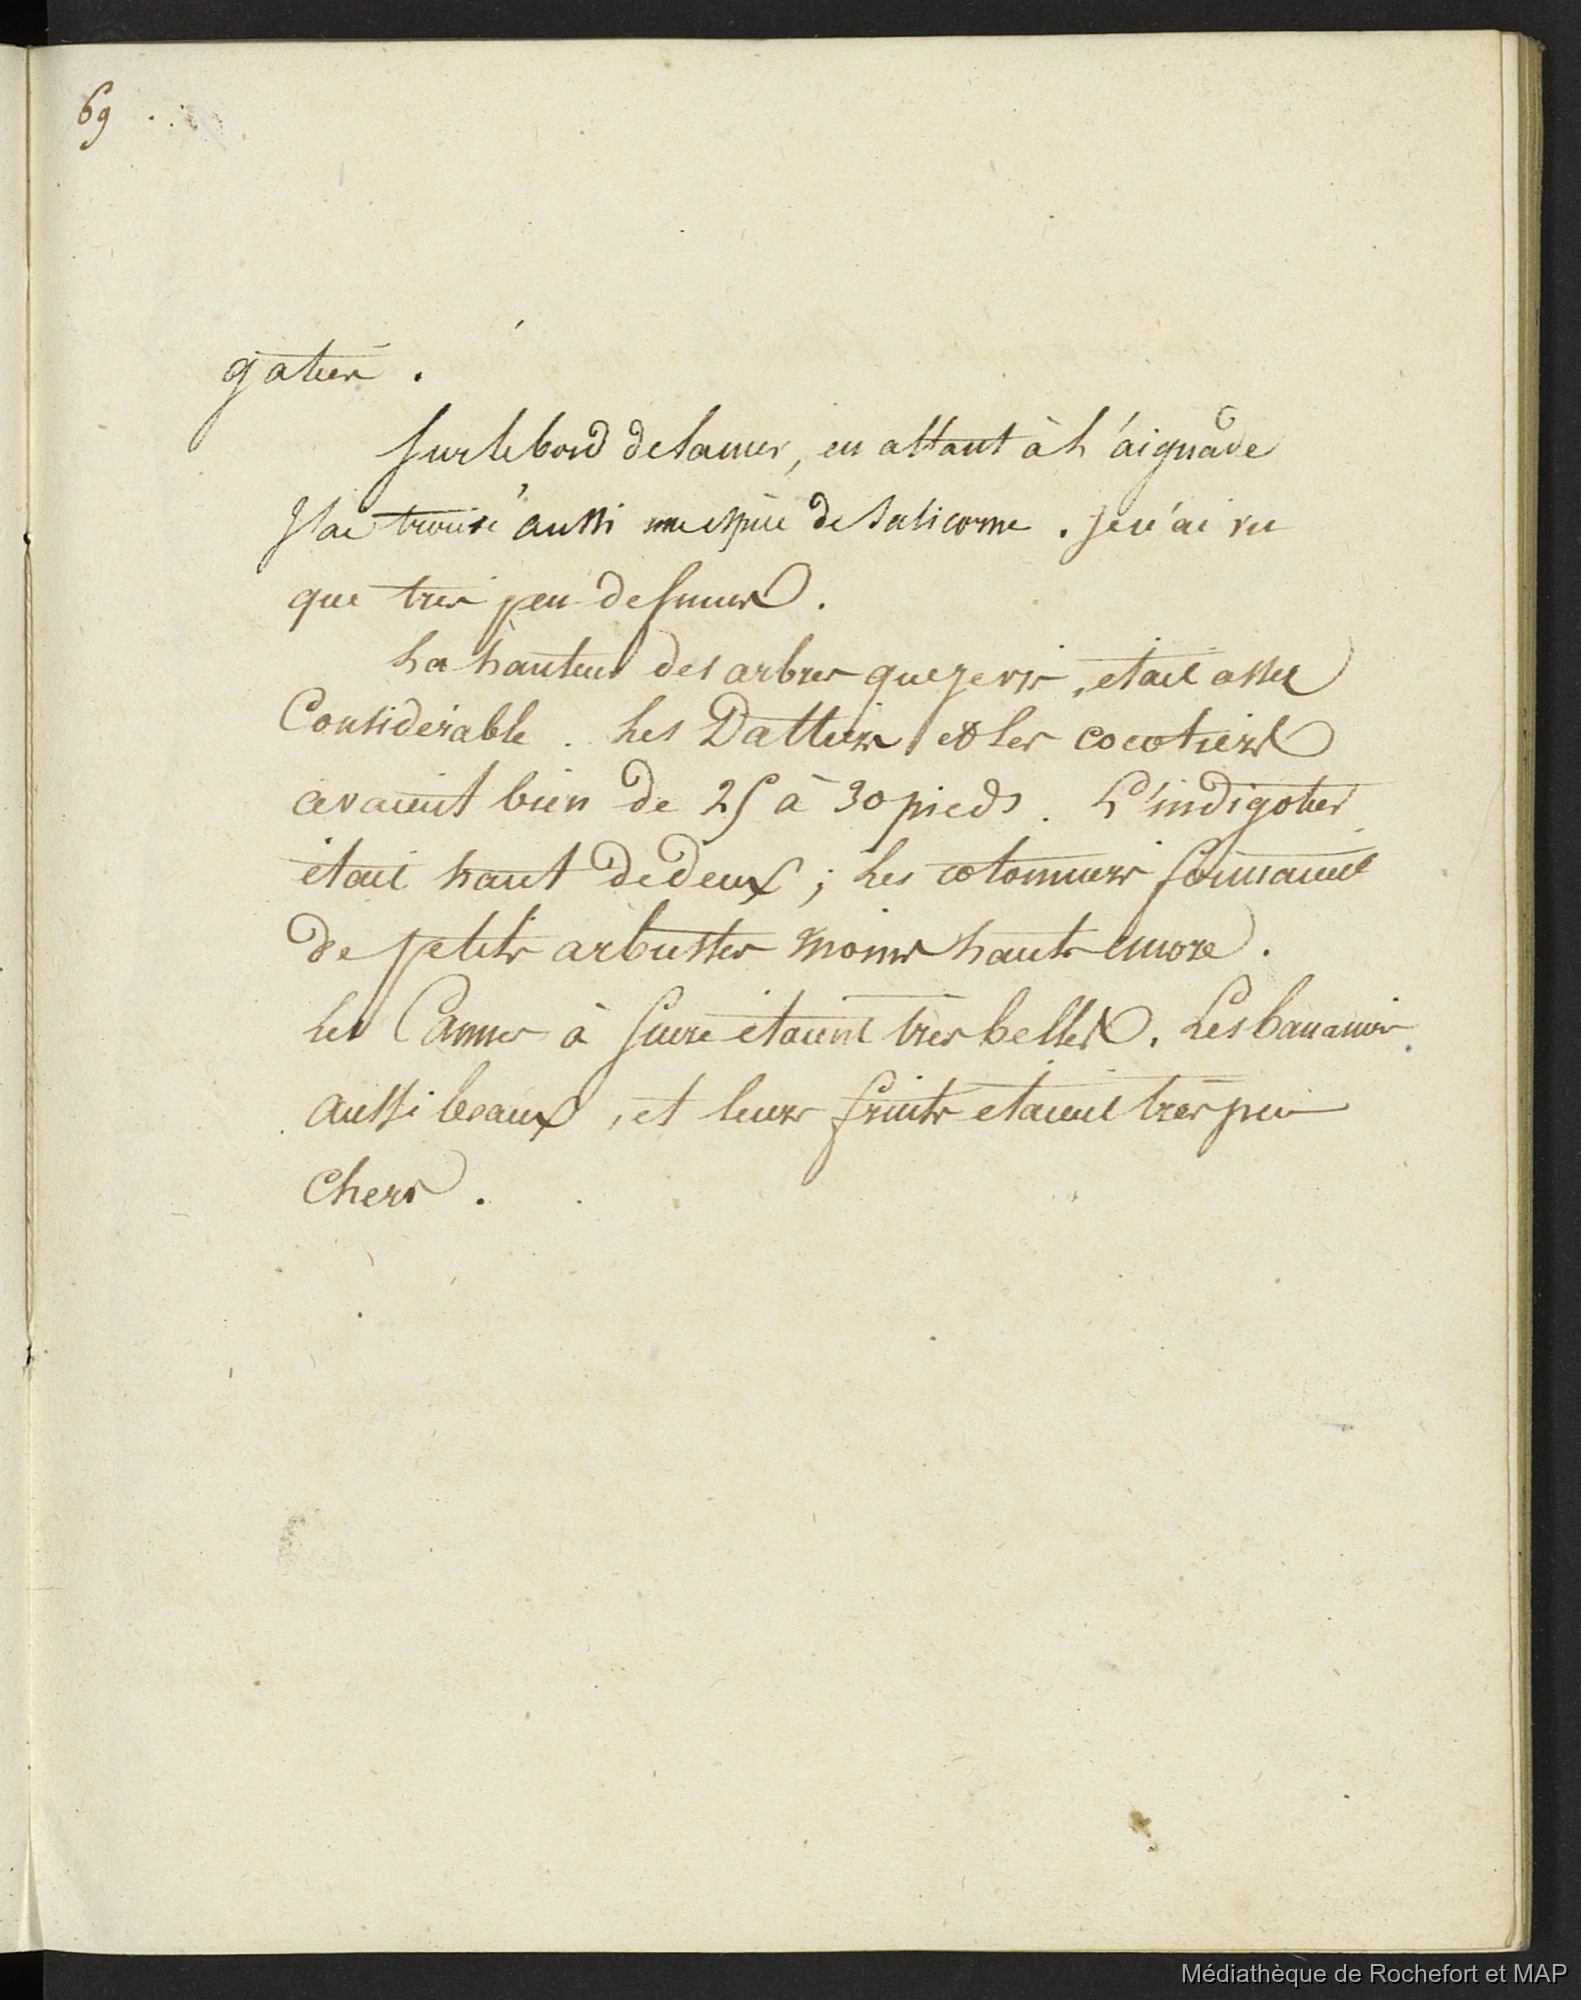 69
gatier .
Sur le bord de la mer, en allant à L'aiguade
J'ai trouvé aussi une espèce de Salicorne . je n'ai vu
que tres peu de fucus .
La hauteur des arbres que je vis, etait assez
Considérable . Les Dattiers et les cocotiers
avaient bien de 25 à 30 pieds . L'indigotier
était haut de deux ; Les cotonniers formaient
de petits arbustes moins hauts encore .
Les Cannes à Sucre étaient très belles . Les bananiers
aussi beaux , et leurs fruits etaient très peu
Chers .
Médiathèque de Rochefort et MAP